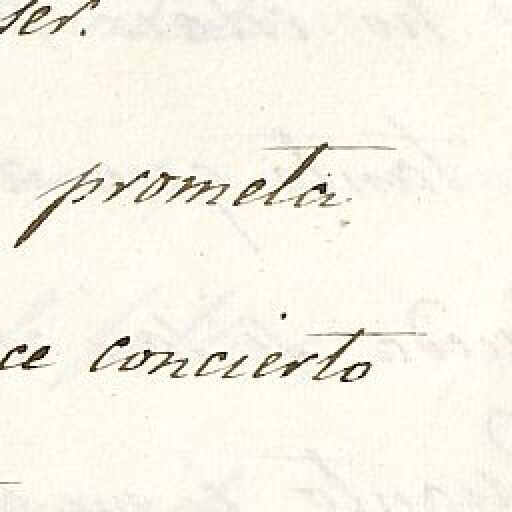 ser.
prometa
ce concierto